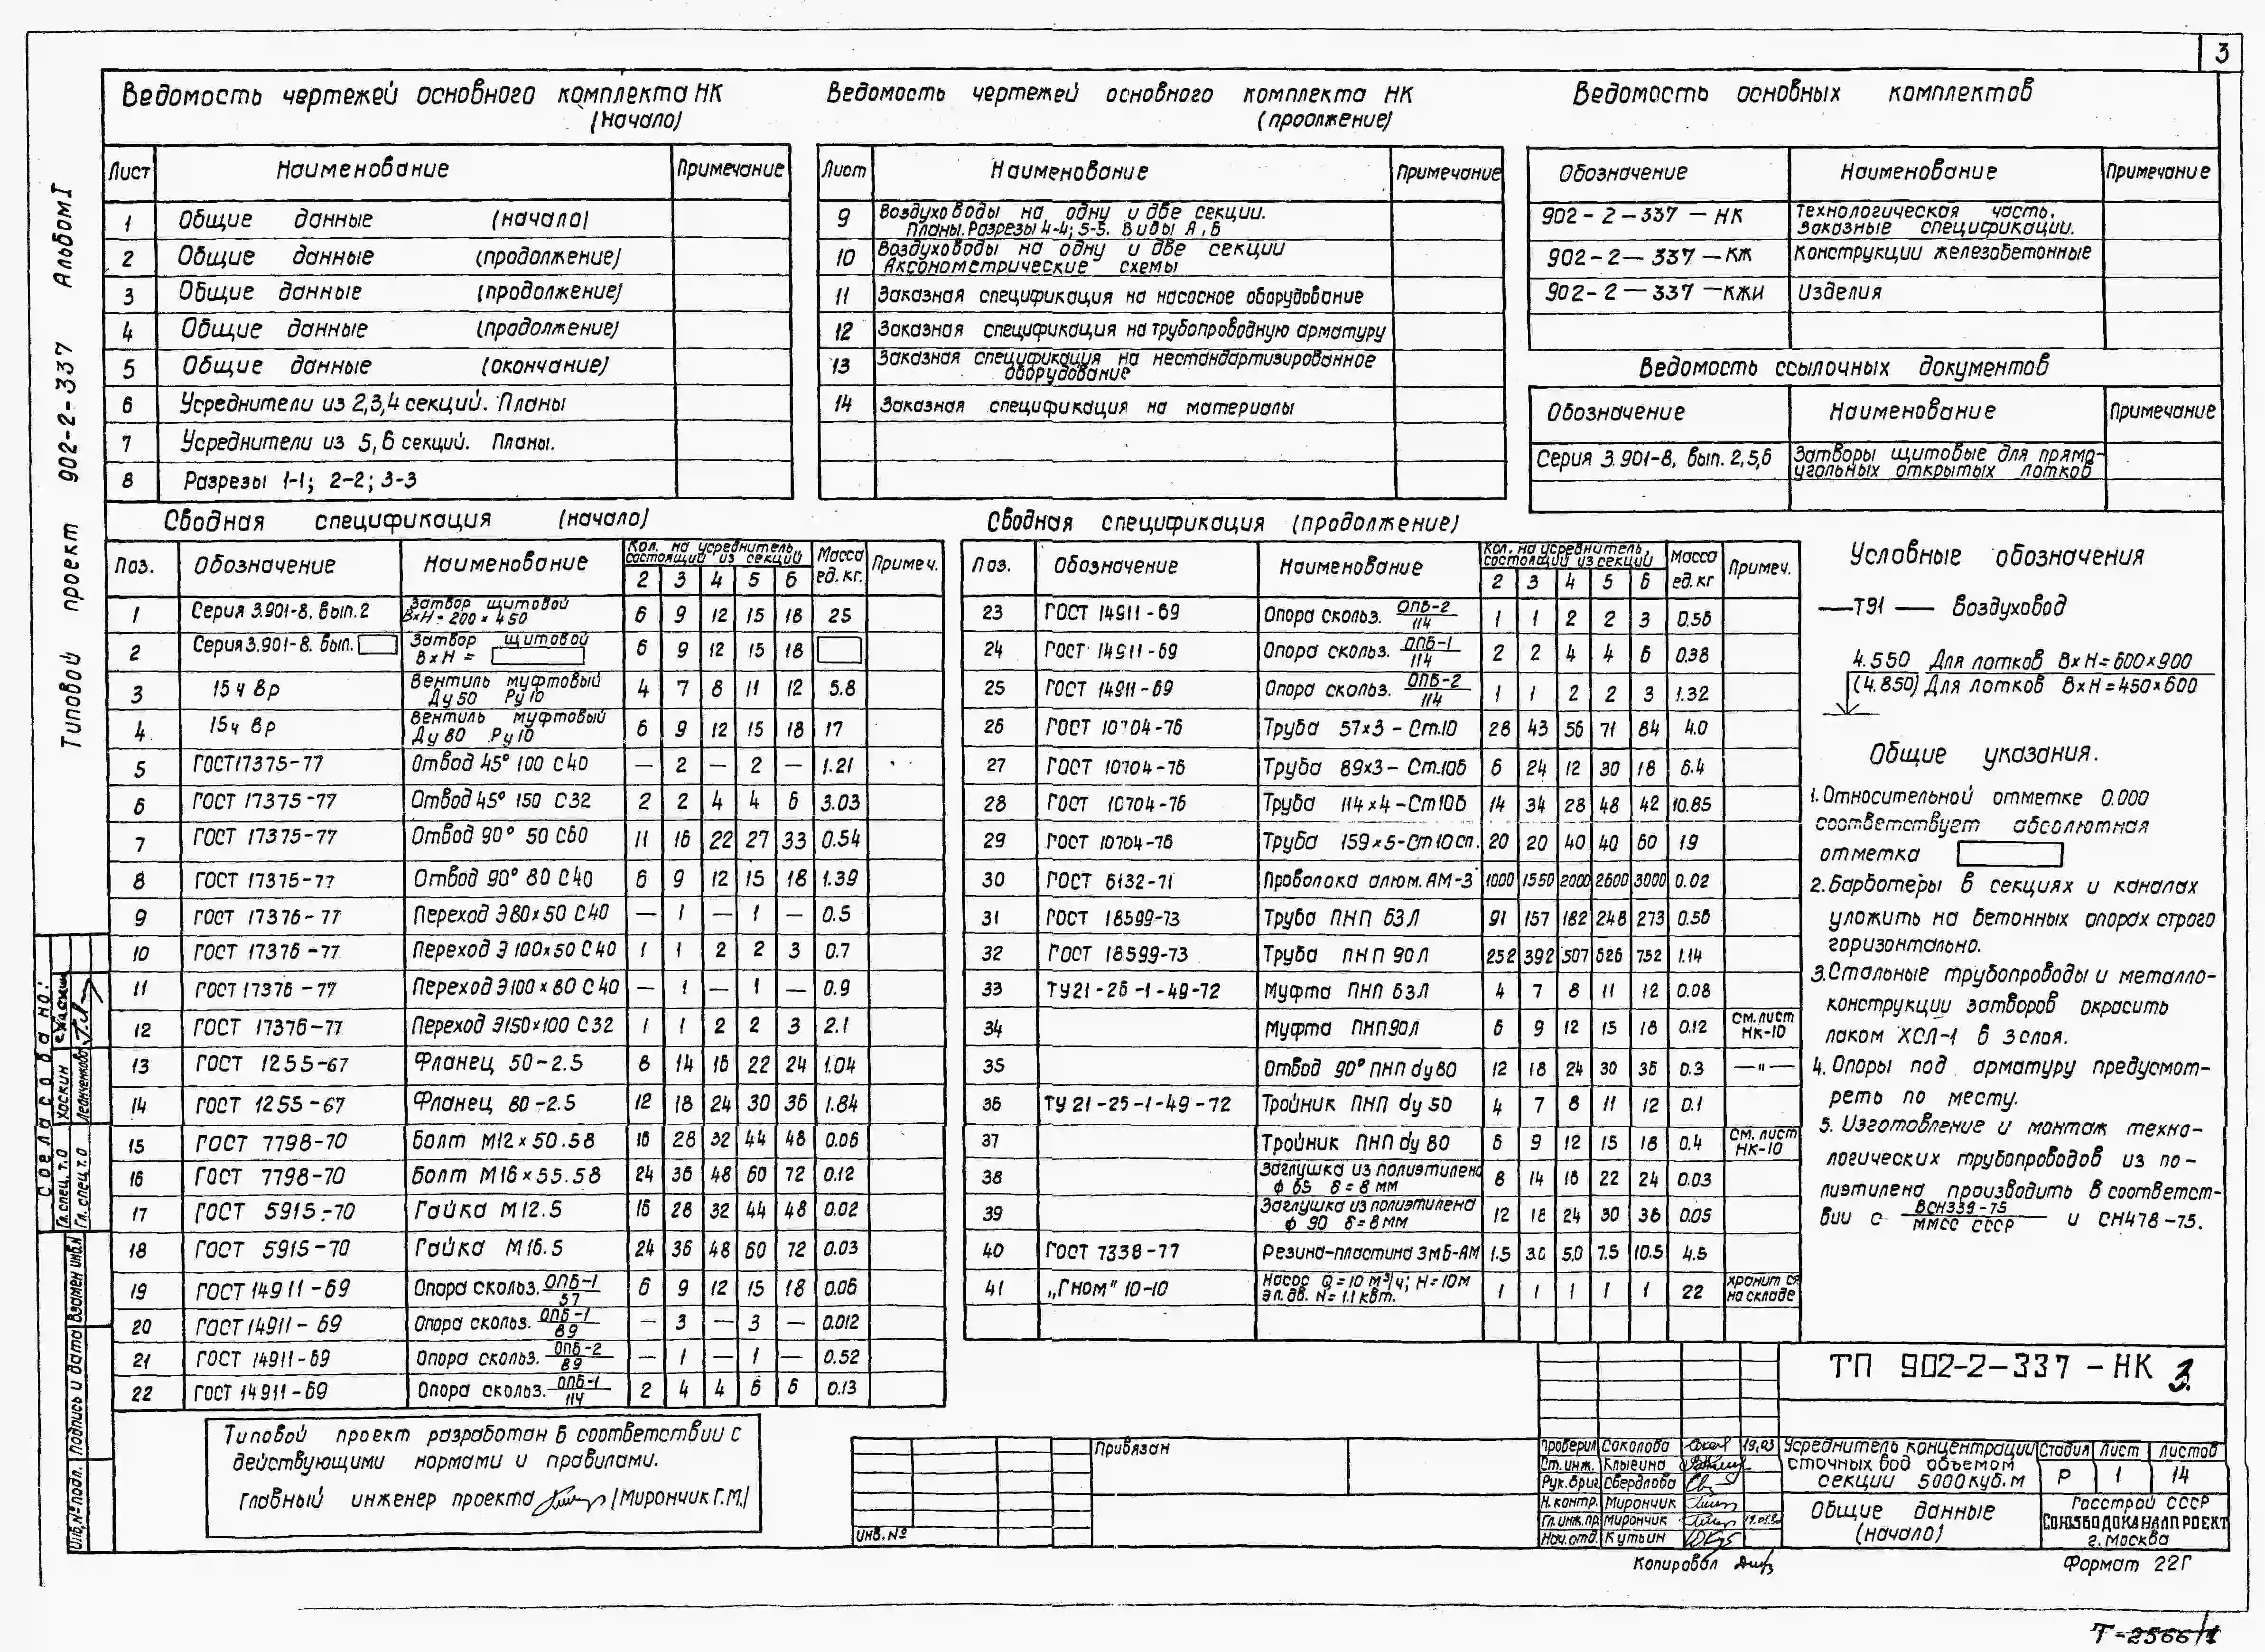 3
Ведомость чертежей основного комплекта НК
(начало)
Лист Наименование Примечание
1 Общие данные (начало)
2 Общие данные (продолжение)
3 Общие данные (продолжение)
4 Общие данные (продолжение)
5 Общие данные (окончание)
6 Усреднители из 2,3,4 секций. Планы
7 Усреднители из 5,6 секций. Планы.
8 Разрезы 1-1; 2-2; 3-3
Ведомость чертежей основного комплекта НК
(проолжение)
Лист Наименование Примечание
9 Воздуховоды на одну и две секции.
Планы. Разрезы 4-4; 5-5. Виды А, Б
10 Воздуховоды на одну и две секции
Аксонометрические схемы
11 Заказная спецификация на насосное оборудование
12 Заказная спецификация на трубопроводную арматуру
13 Заказная спецификация на нестандартизированное
оборудование
14 Заказная спецификация на материалы
Ведомость основных комплектов
Обозначение Наименование Примечание
902-2-337-НК Технологическая часть.
Заказные спецификации.
902-2-337-КЖ Конструкции железобетонные
902-2-337-КЖИ Изделия
Ведомость ссылочных документов
Обозначение Наименование Примечание
Серия 3.901-8, вып. 2,5,6 Затворы щитовые для прямо-
угольных открытых лотков
Сводная спецификация (начало)
Поз. Обозначение Наименование Кол. на усреднитель, состоящий из секций Масса ед. кг. Примеч.
2 3 4 5 6
1 Серия 3.901-8. вып. 2 Затвор щитовой ВхН-200х450 6 9 12 15 18 25
2 Серия 3.901-8. вып. Затвор щитовой ВхН = 6 9 12 15 18
3 15ч 8р Вентиль муфтовый Ду50 Ру10 4 7 8 11 12 5.8
4 15ч 8р Вентиль муфтовый Ду80 Ру10 6 9 12 15 18 17
5 ГОСТ 17375-77 Отвод 45° 100 С40 — 2 — 2 — 1.21
6 ГОСТ 17375-77 Отвод 45° 150 С32 2 2 4 4 6 3.03
7 ГОСТ 17375-77 Отвод 90° 50 С60 11 16 22 27 33 0.54
8 ГОСТ 17375-77 Отвод 90° 80 С40 6 9 12 15 18 1.39
9 ГОСТ 17376-77 Переход Э80х50 С40 — 1 — 1 — 0.5
10 ГОСТ 17376-77 Переход Э 100х50 С40 1 1 2 2 3 0.7
11 ГОСТ 17376-77 Переход Э100х80 С40 — 1 — 1 — 0.9
12 ГОСТ 17376-77 Переход Э150х100 С32 1 1 2 2 3 2.1
13 ГОСТ 1255-67 Фланец 50-2.5 8 14 16 22 24 1.04
14 ГОСТ 1255-67 Фланец 80-2.5 12 18 24 30 36 1.84
15 ГОСТ 7798-70 Болт М12х50.58 16 28 32 44 48 0.06
16 ГОСТ 7798-70 Болт М16х55.58 24 36 48 60 72 0.12
17 ГОСТ 5915-70 Гайка М12.5 16 28 32 44 48 0.02
18 ГОСТ 5915-70 Гайка М16.5 24 36 48 60 72 0.03
19 ГОСТ 14911-69 Опора скольз. ОПБ-1/57 6 9 12 15 18 0.06
20 ГОСТ 14911-69 Опора скольз. ОПБ-1/89 — 3 — 3 — 0.012
21 ГОСТ 14911-69 Опора скольз. ОПБ-2/89 — 1 — 1 — 0.52
22 ГОСТ 14911-69 Опора скольз. ОПБ-1/114 2 4 4 6 6 0.13
Сводная спецификация (продолжение)
Поз. Обозначение Наименование Кол. на усреднитель, состоящий из секций Масса ед. кг Примеч.
2 3 4 5 6
23 ГОСТ 14911-69 Опора скольз. ОПБ-2/114 1 1 2 2 3 0.56
24 ГОСТ 14911-69 Опора скольз. ОПБ-1/114 2 2 4 4 6 0.38
25 ГОСТ 14911-69 Опора скольз. ОПБ-2/114 1 1 2 2 3 1.32
26 ГОСТ 10704-76 Труба 57х3 - Ст.10 28 43 56 71 84 4.0
27 ГОСТ 10704-76 Труба 89х3 - Ст.10б 6 24 12 30 18 6.4
28 ГОСТ 10704-76 Труба 114х4 - Ст10б 14 34 28 48 42 10.85
29 ГОСТ 10704-76 Труба 159х5-Ст10сп. 20 20 40 40 60 19
30 ГОСТ 6132-71 Проволока алюм. АМ-3 1000 1550 2000 2600 3000 0.02
31 ГОСТ 18599-73 Труба ПНП 63Л 91 157 182 248 273 0.56
32 ГОСТ 18599-73 Труба ПНП 90Л 252 392 507 626 752 1.14
33 ТУ21-26-1-49-72 Муфта ПНП 63Л 4 7 8 11 12 0.08
34 Муфта ПНП90Л 6 9 12 15 18 0.12 См. лист НК-10
35 Отвод 90° ПНП dy80 12 18 24 30 36 0.3 —"—
36 ТУ 21-25-1-49-72 Тройник ПНП dy 50 4 7 8 11 12 0.1
37 Тройник ПНП dy 80 6 9 12 15 18 0.4 См. лист НК-10
38 Заглушка из полиэтилена ф 65 δ=8мм 8 14 16 22 24 0.03
39 Заглушка из полиэтилена ф 90 δ=8мм 12 18 24 30 36 0.05
40 ГОСТ 7338-77 Резина-пластина 3мБ-АМ 1.5 3.0 5.0 7.5 10.5 4.5
41 „Гном" 10-10 Насос Q=10 м³/ч; Н=10м эл. дв. N=1.1 квт. 1 1 1 1 1 22 хранится на складе
Условные обозначения
—Т91— Воздуховод
4.550 Для лотков ВхН=600х900
(4.850) Для лотков ВхН=450х600
Общие указания.
1. Относительной отметке 0.000
соответствует абсолютная
отметка
2. Барботеры в секциях и каналах
уложить на бетонных опорах строго
горизонтально.
3. Стальные трубопроводы и металло-
конструкции затворов окрасить
лаком ХСЛ-1 в 3 слоя.
4. Опоры под арматуру предусмот-
реть по месту.
5. Изготовление и монтаж техно-
логических трубопроводов из по-
лиэтилена производить в соответст-
вии с ВСН339-75/ММСС СССР и СН478-75.
Типовой проект разработан в соответствии с
действующими нормами и правилами.
Главный инженер проекта /Мирончик Г.М./
Привязан
Инв. №
ТП 902-2-337-НК 3.
Проверил Соколова
Ст. инж. Клыгина
Рук. бриг. Свердлова
Н. контр. Мирончик
Гл. инж. пр. Мирончик
Нач. отд. Кутьин
Усреднитель концентрации
сточных вод объемом
секции 5000куб.м
Стадия Лист Листов
Р 1 14
Общие данные
(начало)
Госстрой СССР
СОЮЗВОДОКАНАЛПРОЕКТ
г. Москва
Копировал
Формат 22Г
Т-2566/1
Типовой проект 902-2-337 Альбом I
Согласовано:
Гл. спец. т.о Хаскин
Гл. спец. т.о
Инв.№ подл. Подпись и дата Взамен инв.№